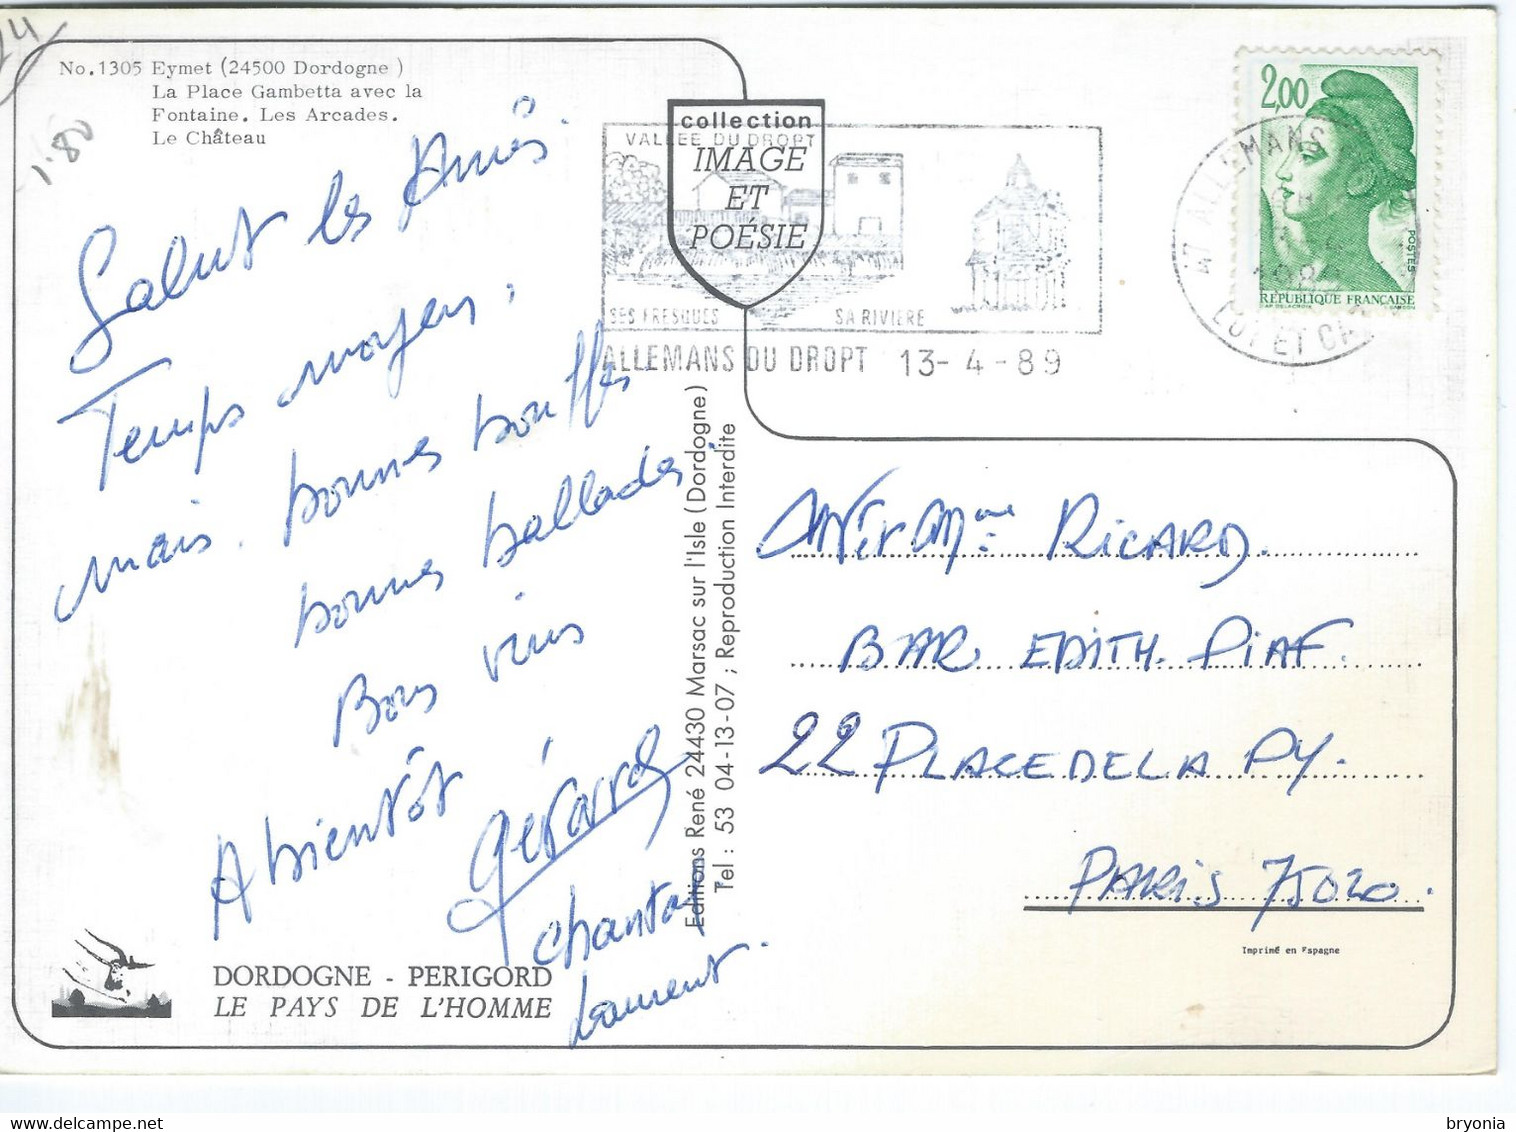 24
1.80
No.1305 Eymet (24500 Dordogne )
La Place Gambetta avec la
Fontaine. Les Arcades.
Le Château
Salut les Amis
Temps moyen,
mais. bonnes bouffes
bonnes ballades
Bons vins
A bientôt
Gérard
Chantal
Laurent.
DORDOGNE - PERIGORD
LE PAYS DE L'HOMME
collection
IMAGE
ET
POÉSIE
VALLEE DU DROPT
SES FRESQUES SA RIVIERE
ALLEMANS DU DROPT 13-4-89
47 ALLEMANS
LOT ET GA
2,00
POSTES
RÉPUBLIQUE FRANÇAISE
Editions René 24430 Marsac sur l'Isle (Dordogne)
Tel : 53 04-13-07 ; Reproduction Interdite
Mr et Mme RICARD.
BAR EDITH. PIAF.
22 PLACE DE LA PY.
PARIS 75020.
Imprimé en Espagne
bryonia